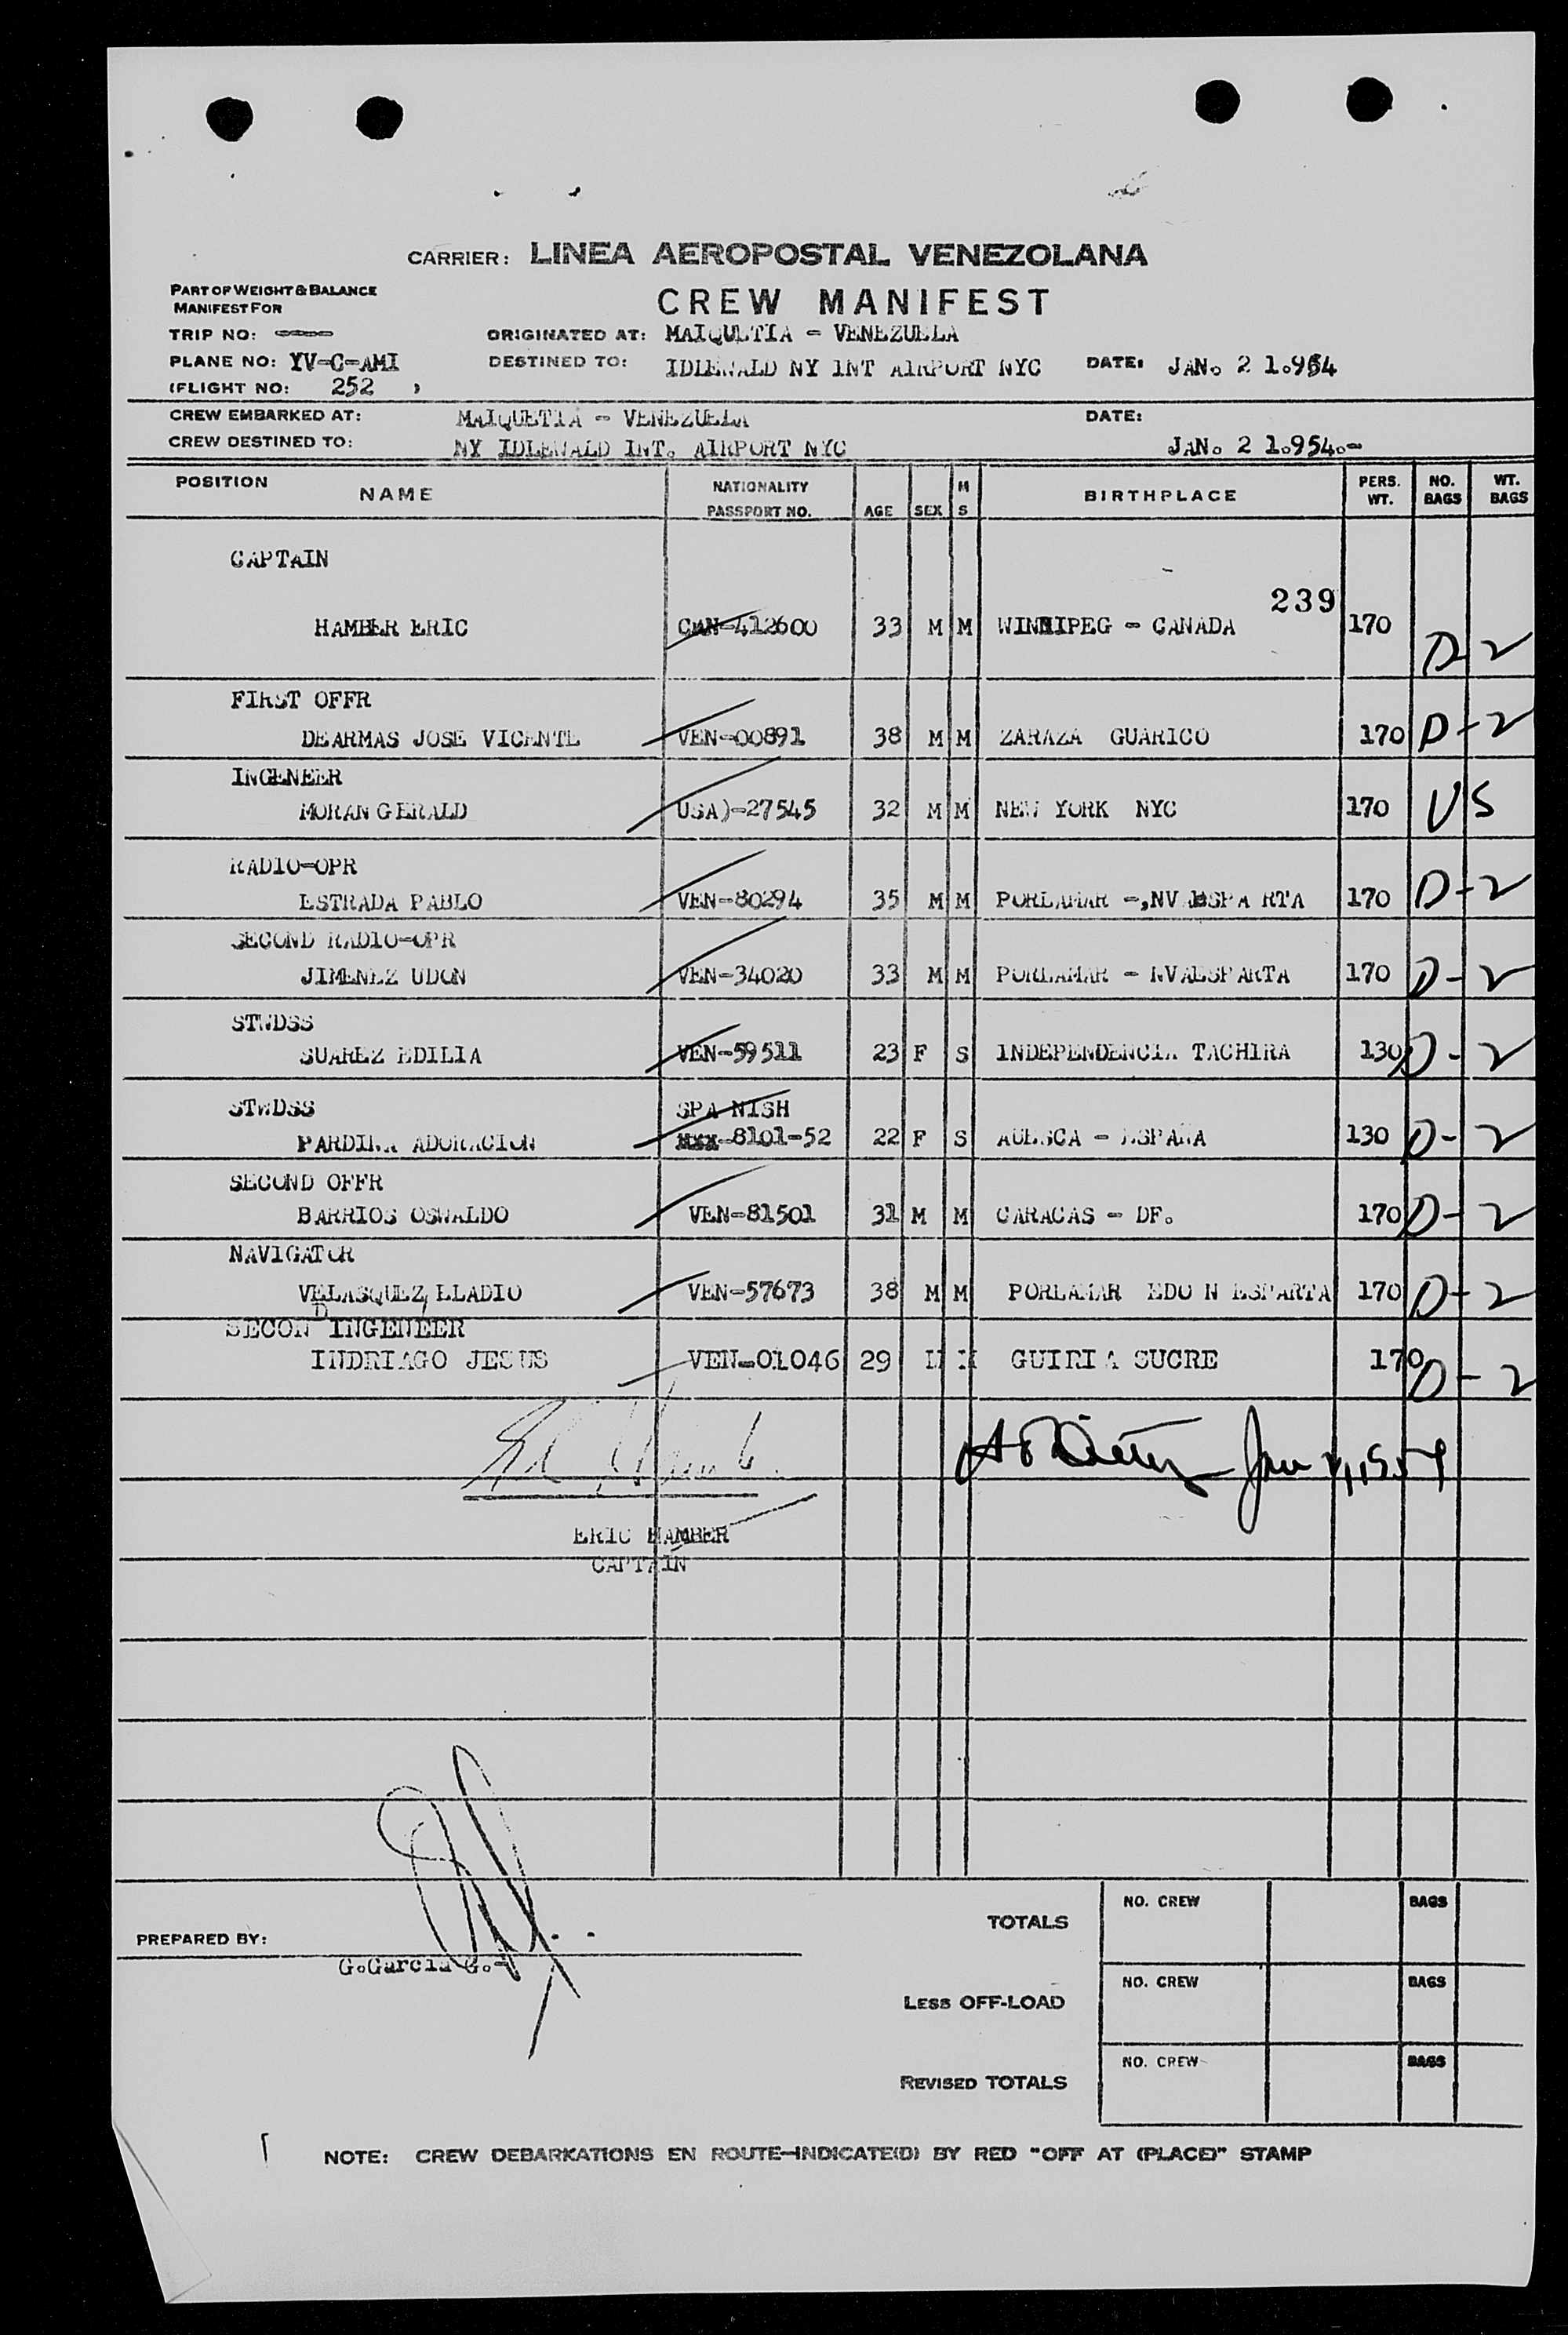 CARRIER: LINEA AEROPOSTAL VENEZOLANA
PART OF WEIGHT & BALANCE
MANIFEST FOR
CREW MANIFEST
TRIP NO: ORIGINATED AT: MAIQUETIA - VENEZUELA
PLANE NO: YV-C-AMI DESTINED TO: IDLEWALD NY INT AIRPORT NYC DATE: JAN. 2 1.954
(FLIGHT NO: 252 )
CREW EMBARKED AT: MAIQUETIA - VENEZUELA DATE:
CREW DESTINED TO: NY IDLEWALD INT. AIRPORT NYC JAN. 2 1.954.-
POSITION NAME NATIONALITY PASSPORT NO. AGE SEX M S BIRTHPLACE PERS. WT. NO. BAGS WT. BAGS
CAPTAIN
239
HAMBER ERIC CAN-412600 33 M M WINNIPEG - CANADA 170 D-2
FIRST OFFR
DEARMAS JOSE VICENTE VEN-00891 38 M M ZARAZA GUARICO 170 D-2
INGENEER
MORAN GERALD USA)-27545 32 M M NEW YORK NYC 170 US
RADIO-OPR
ESTRADA PABLO VEN-80294 35 M M PORLAMAR -,NV ESPA RTA 170 D-2
SECOND RADIO-OPR
JIMENEZ UDON VEN-34020 33 M M PORLAMAR - NVAESPARTA 170 D-2
STWDSS
SUAREZ EDILIA VEN-59511 23 F S INDEPENDENCIA TACHIRA 130 D-2
STWDSS SPA NISH
PARDINA ADORACION 8101-52 22 F S AUESCA - ESPAÑA 130 D-2
SECOND OFFR
BARRIOS OSWALDO VEN-81501 31 M M CARACAS - DF. 170 D-2
NAVIGATOR
VELASQUEZ ELADIO VEN-57673 38 M M PORLAMAR EDO N ESPARTA 170 D-2
SECOND INGENEER
INDRIAGO JESUS VEN-01046 29 M M GUIRIA SUCRE 170 D-2
Jan 2, 1954
ERIC HAMBER
CAPTAIN
TOTALS NO. CREW BAGS
PREPARED BY:
G.Garcia G.-
LESS OFF-LOAD NO. CREW BAGS
REVISED TOTALS NO. CREW BAGS
NOTE: CREW DEBARKATIONS EN ROUTE-INDICATE(D) BY RED "OFF AT (PLACE)" STAMP